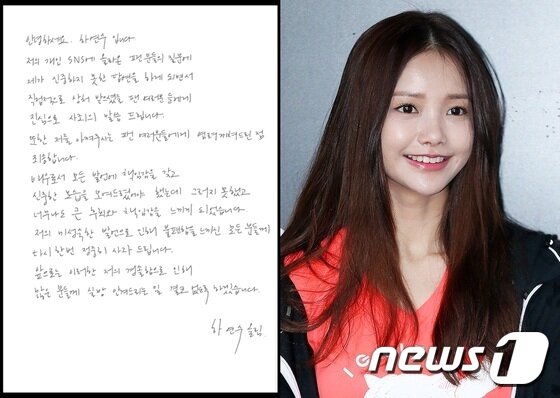 안녕하세요. 하연수 입니다
저의 개인 SNS에 올라온 팬 분들의 질문에
제가 신중하지 못한 답변을 하게 되면서
직접적으로 상처 받으셨을 팬 여러분들에게
진심으로 사죄의 말씀 드립니다.
또한 저를 아껴주시는 팬 여러분들에게 심려끼쳐드린 점
죄송합니다.
배우로서 모든 발언에 책임감을 갖고
신중한 모습을 보여드렸어야 했는데 그러지 못했고
너무나도 큰 후회와 책임감을 느끼게 되었습니다.
저의 미성숙한 발언으로 인해 불쾌함을 느끼신 모든 분들께
다시 한번 정중히 사과 드립니다.
앞으로는 이러한 저의 경솔함으로 인해
많은 분들께 실망 안겨드리는 일 결코 없도록 하겠습니다.
하 연수 올림.
news1